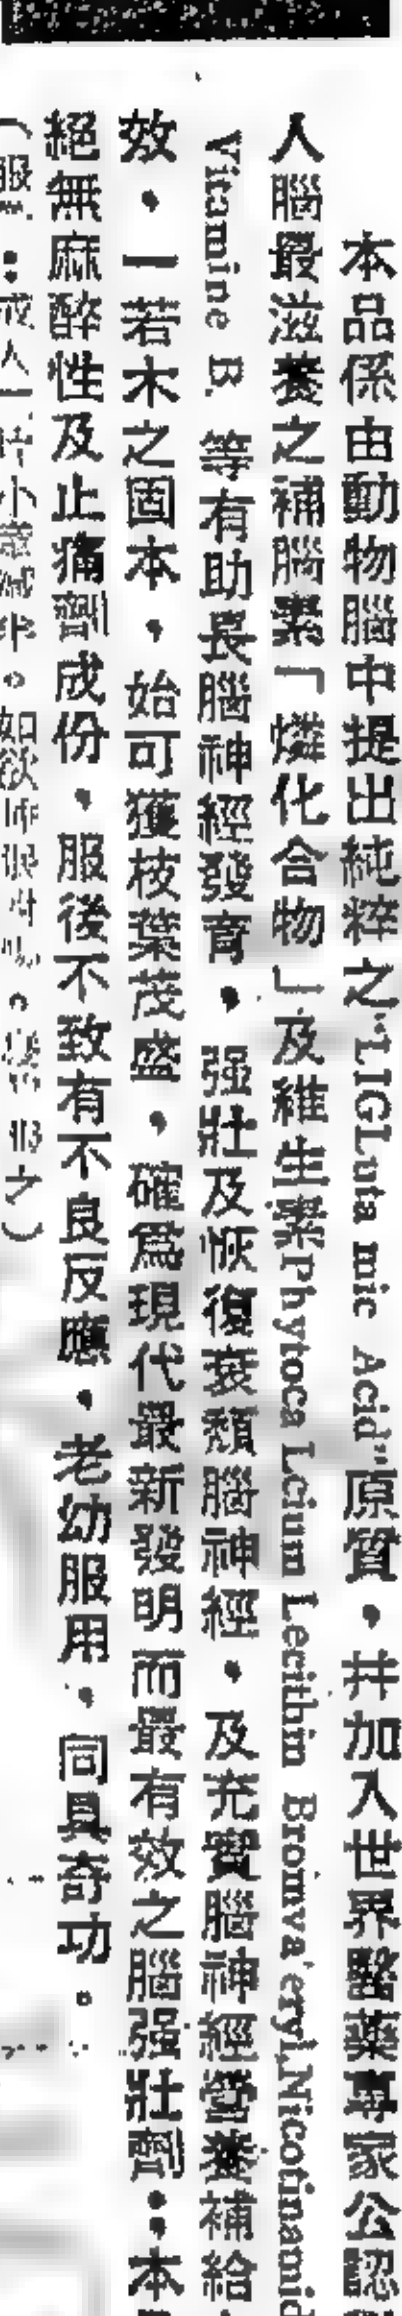 本品係由動物腦中提出純粹之"LIGLuta mic Acid"原質，幷加入世界醫藥專家公認
人腦最滋養之補腦素「燐化合物」及維生素Phytoca Lcium Lecithin Bromva'eryl,Nicotinamid
Vitamine B. 等有助長腦神經發育，强壯及恢復衰頹腦神經，及充實腦神經營養補給
效，一若木之固本，始可獲枝葉茂盛，確爲現代最新發明而最有效之腦强壯劑：本
絕無麻醉性及止痛劑成份，服後不致有不良反應，老幼服用，同具奇功。
（服：成人一